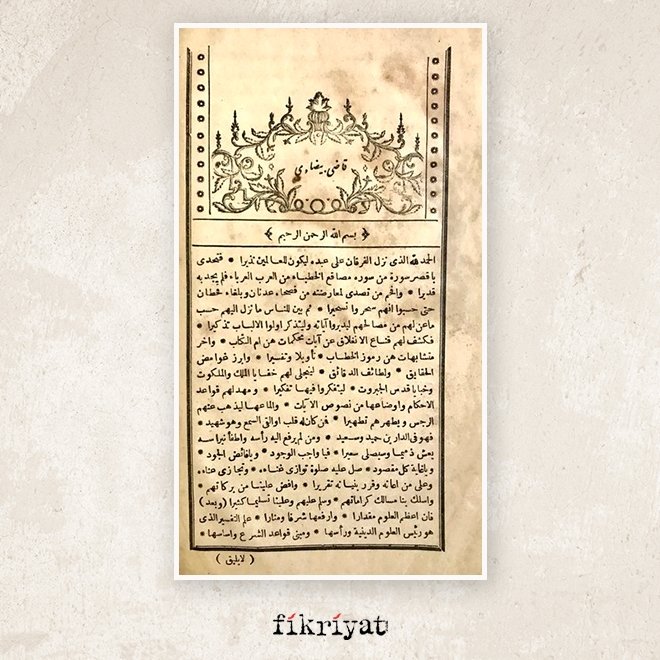 قاضى بيضاوى
بسم الله الرحمن الرحيم
الحمد لله الذى نزل الفرقان على عبده ليكون للعالمين نذيرا * فتحدى
باقصر سورة من سوره مصاقع الخطباء من العرب العرباء فلم يجد به
قديرا * وافحم من تصدى لمعارضته من فصحاء عدنان وبلغاء قحطان
حتى حسبوا انهم سحروا تسحيرا * ثم بين للناس ما نزل اليهم حسب
ما عن لهم من مصالحهم ليدبروا آياته وليتذكر اولوا الالباب تذكيرا *
فكشف لهم قناع الانغلاق عن آيات محكمات هن ام الكتاب * واخر
متشابهات هن رموز الخطاب * تأويلا وتفسيرا * وابرز غوامض
الحقايق * ولطائف الدقائق * ليتجلى لهم خفايا الملك والملكوت
وخبايا قدس الجبروت * ليتفكروا فيها تفكيرا * ومهد لهم قواعد
الاحكام واوضاعها من نصوص الآيات * والماعها ليذهب عنهم
الرجس ويطهرهم تطهيرا * فن كان له قلب او القى السمع وهو شهيد *
فهو فى الدارين حميد وسعيد * ومن لم يرفع اليه رأسه واطفأ نبراسه
يعش ذميما وسيصلى سعيرا * فيا واجب الوجود * ويا فائض الجود *
ويا غاية كل مقصود * صل عليه صلوة توازى غناءه * وتجازى عناءه
وعلى من اعانه وقرر بنيانه تقريرا * وافض علينا من بركاتهم *
واسلك بنا مسالك كراماتهم * وسلم عليهم وعلينا تسليما كثيرا (وبعد)
فان اعظم العلوم مقدارا * وارفعها شرفا ومنارا * علم التفسير الذى
هو رئيس العلوم الدينية ورأسها * ومبنى قواعد الشرع واساسها *
( لايليق )
fikriyat